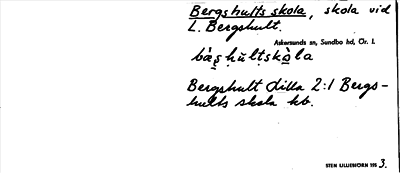 Bergshults skola, skola vid
L. Bergshult.
Askersunds sn, Sundbo hd, Ör. l.
Bergshult Lilla 2:1 Bergs-
hults skola kb.
STEN LILLIEHÖÖK 195 3.